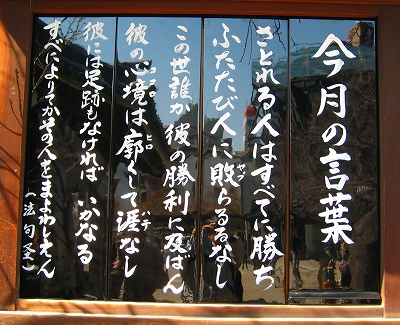 今月の言葉
さとれる人はすべてに勝ち
ふたたび人に敗らるるなし
この世誰か彼の勝利に及ばん
彼の心境は廓くして涯なし
彼には足跡もなければ いかなる
すべによりてかその人をまよわしえん
(法句圣)
ヤブ
ココロ
ヒロ
ハテ